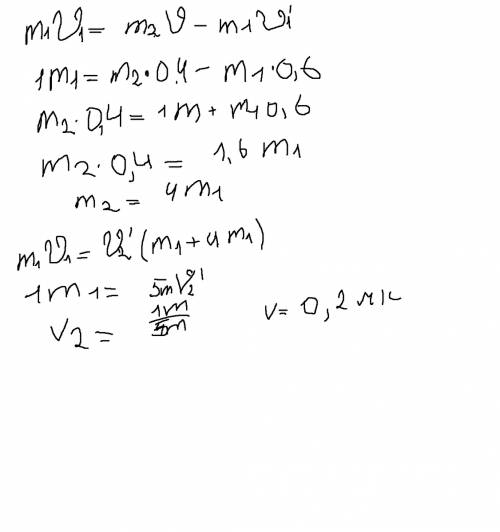 m₁υ₁ = m₂υ - m₁υ₁'
1m₁ = m₂·0,4 - m₁·0,6
m₂·0,4 = 1m + m₁0,6
m₂·0,4 = 1,6 m₁
m₂ = 4m₁
m₁υ₁ = υ₂' (m₁ + 4m₁)
1m₁ = 5mυ₂'
v₂ = 1m/5m v = 0,2 м/с